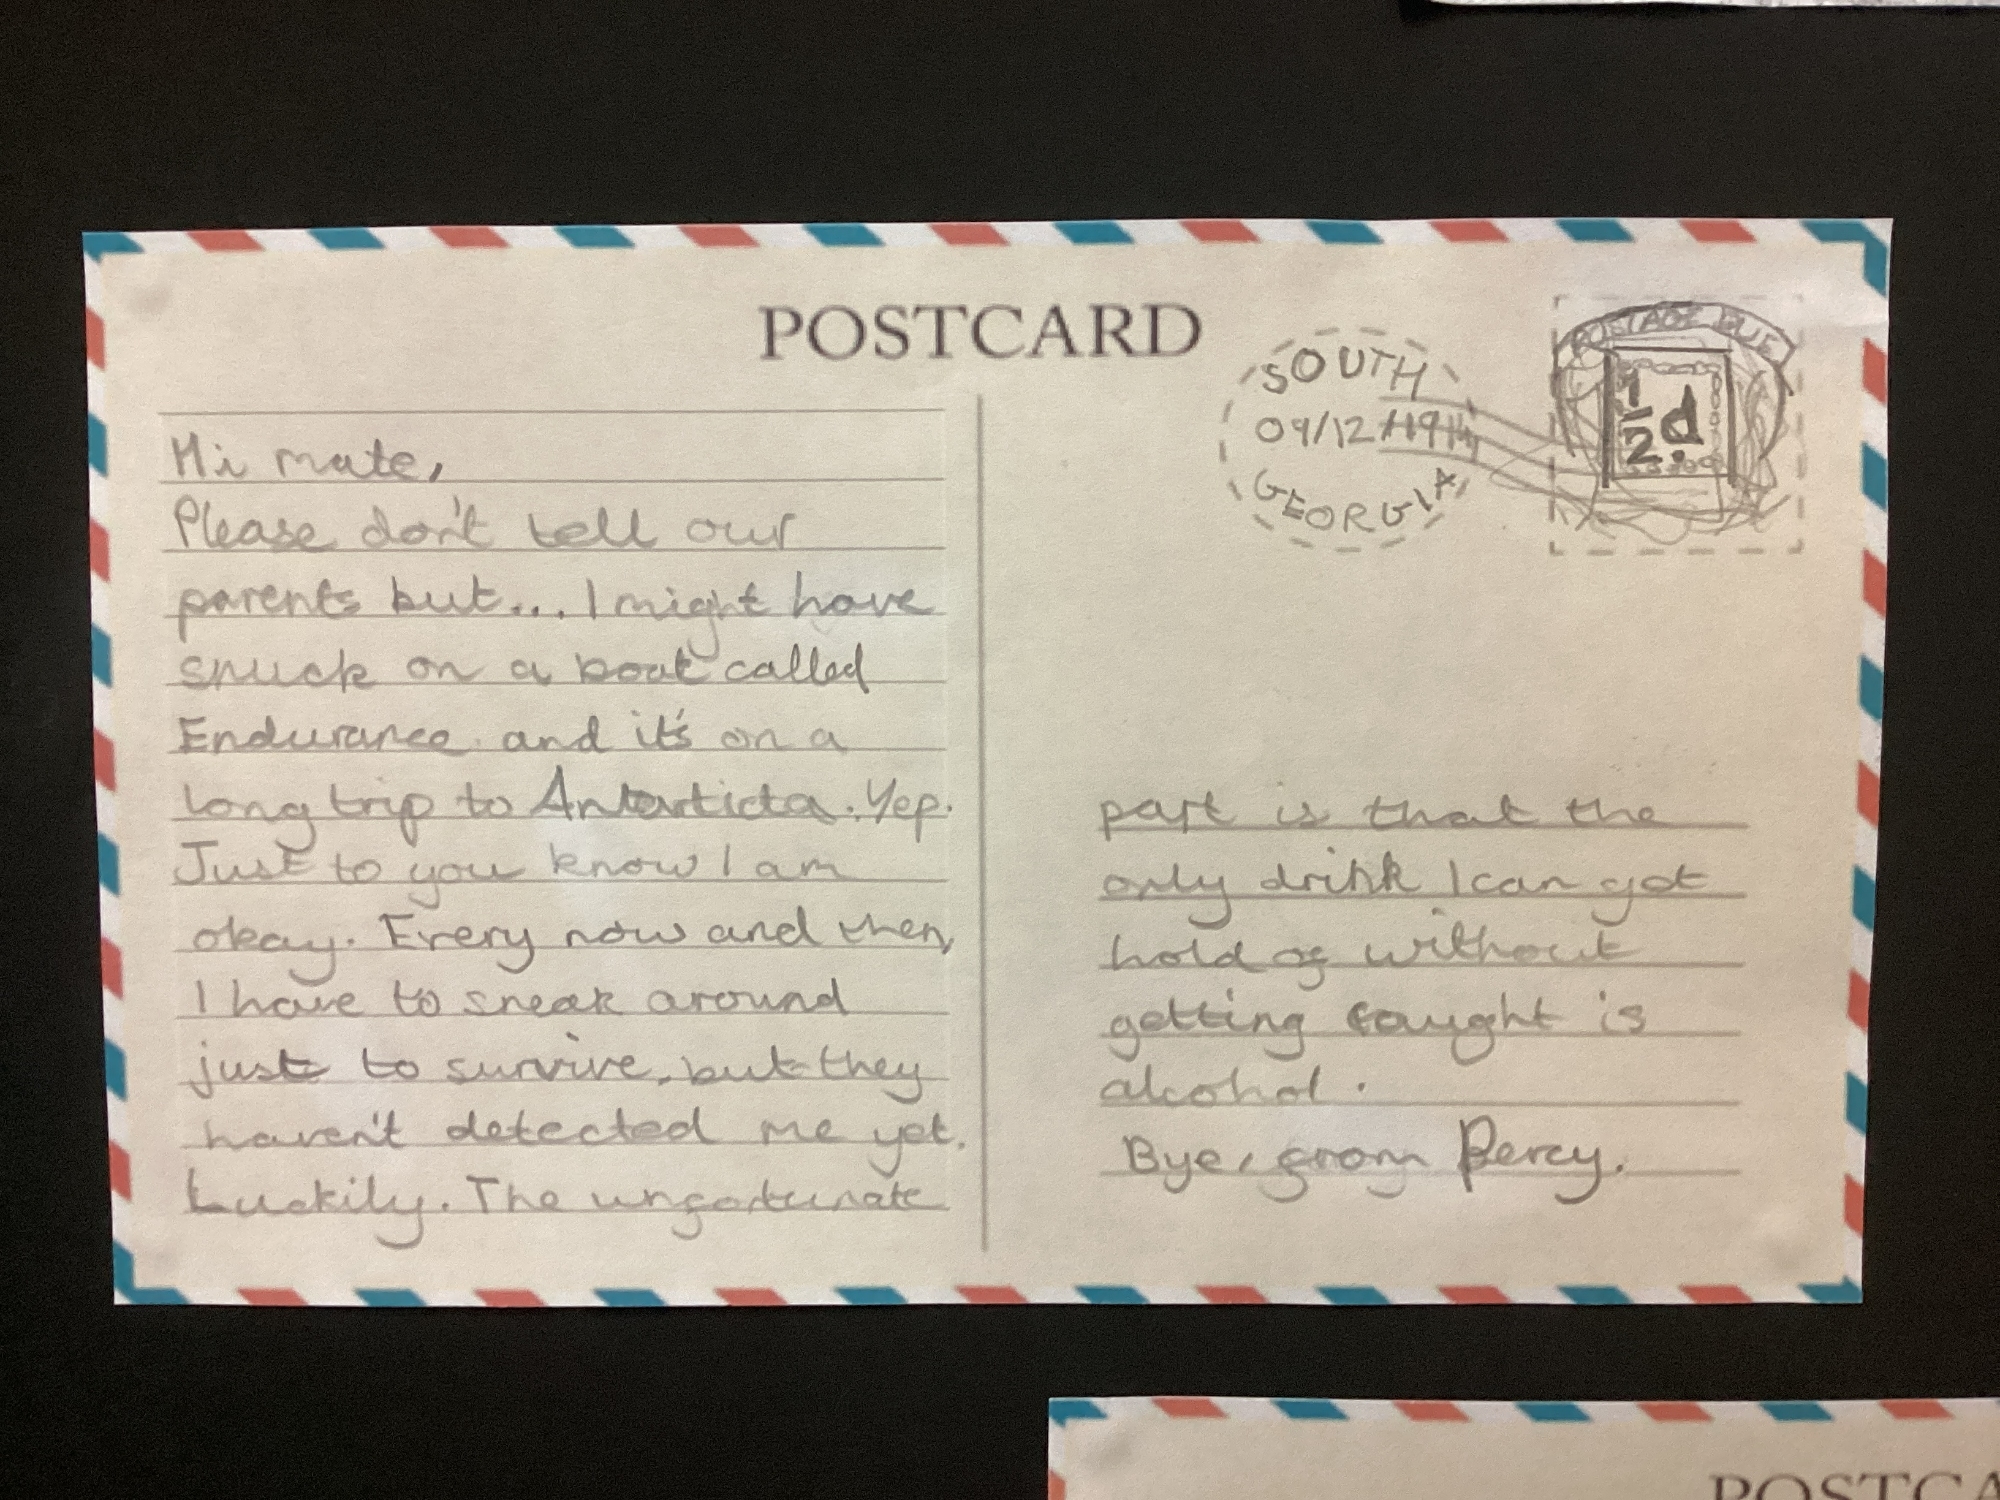 POSTCARD
SOUTH
09/12/1914
GEORGIA
POSTAGE DUE
1/2 d.
Hi mate,
Please don't tell our
parents but... I might have
snuck on a boat called
Endurance and it's on a
long trip to Antarticta. Yep.
Just to you know I am
okay. Every now and then,
I have to sneak around
just to survive, but they
haven't detected me yet.
Luckily. The unfortunate
part is that the
only drink I can get
hold of without
getting caught is
alcohol.
Bye, from Percy.
POSTCA